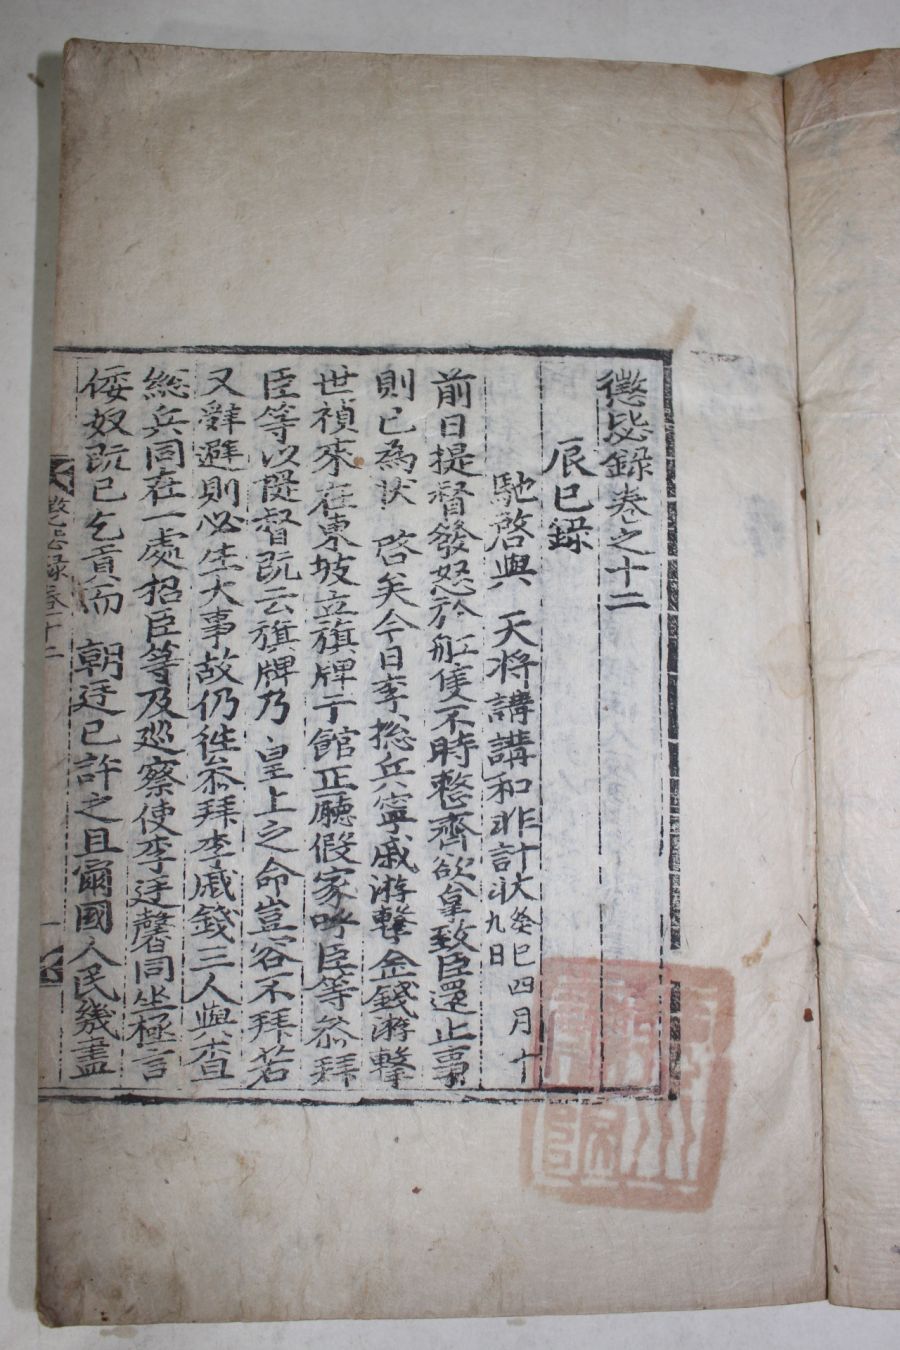 懲毖錄卷之十二
辰巳錄
馳啓與 天將講講和非計狀癸巳四月十九日
前日提督發怒於舡隻不時整齊欲拿致臣還止事
則已為狀 啓矣今日李摠兵寧戚游擊金錢游擊
世禎來在東坡立旗牌于館正廳假家呼臣等叅拜
臣等以提督旣云旗牌乃 皇上之命豈容不拜若
又辭避則必生大事故仍徃叅拜李戚錢三人與查
総兵同在一處招臣等及廵察使李廷馨同坐極言
倭奴旣已乞貢而 朝廷已許之且爾國人民幾盡
懲毖录卷十二
一